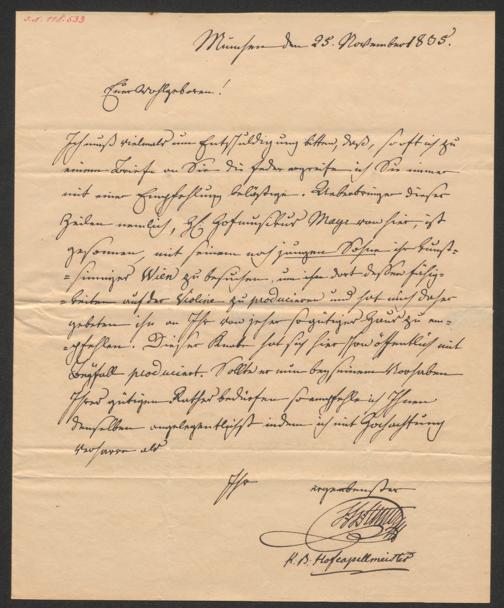 I.N. 118.533
München den 25. November 1835.
Euer Wohlgeboren!
Ich muß vielmals um Entschuldigung bitten, daß, so oft ich zu
einem Briefe an Sie die Feder ergreife ich Sie immer
mit einer Empfehlung belästige. Ueberbringer dieser
Zeilen nemlich, Hofmusikus Maye von hier, ist
gesonnen, mit seinem noch jungen Sohne ihr kunst-
=sinniges Wien zu besuchen, um ihn dort dessen Fähig-
=keiten auf der Violine zu produciren und hat mich daher
gebeten ihn an Ihr von jeher so gütiges Haus zu em-
=pfehlen. Dieser Knabe hat sich hier schon öffentlich mit
Beyfall producirt. Sollte er nun bey seinem Vorhaben
Ihres gütigen Rathes bedürfen so empfehle ich Ihnen
denselben angelegentlichst indem ich mit Hochachtung
verharre als
Ihr ergebenster
K. B. Hofcapellmeister